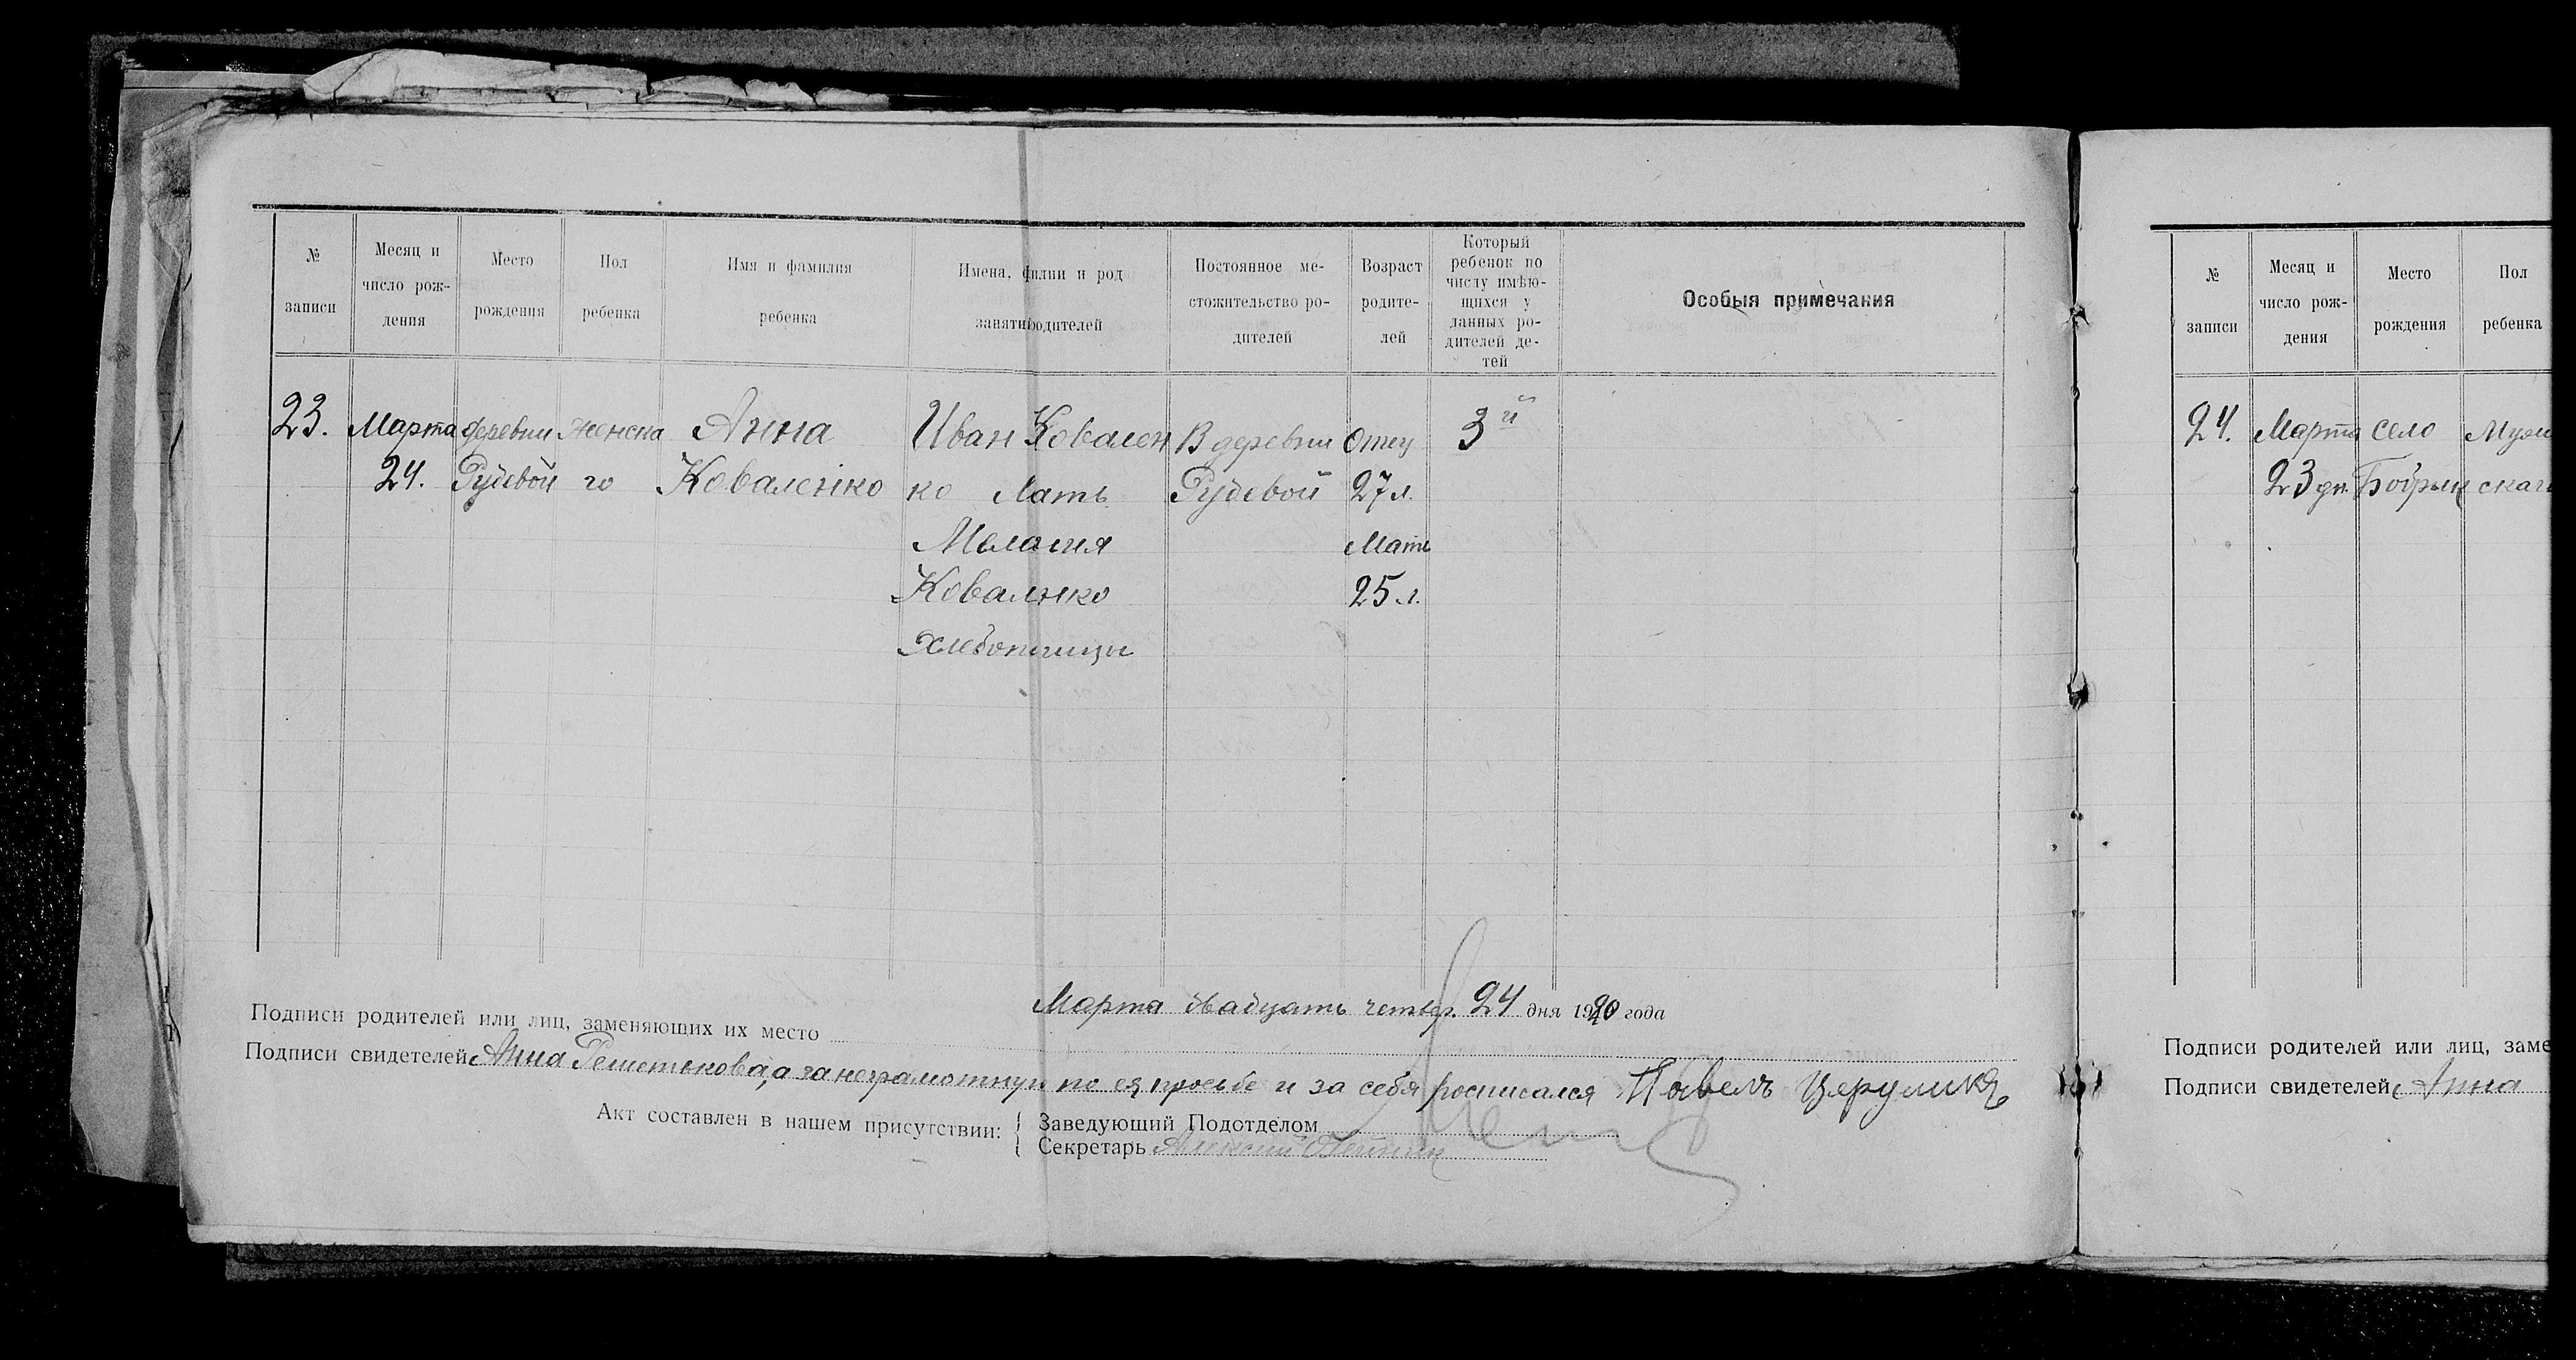 № записи
Месяц и число рождения
Место рождения
Пол ребенка
Имя и фамилия ребенка
Имена, филии и род занятиродителей
Постоянное местожительство родителей
Возраст родителей
Который ребенок по числу имѣющихся у данных родителей детей
Особыя примечания
23. Марта деревни женска Анна Иван Ковален В деревни Отец 3й
24. Рудевой го Коваленко ко Мать Рудевой 27 л.
Мать
Ковалнко 25 л.
Хлебопашцы
Марта двадцать четвер. 24 дня 1920 года
Подписи родителей или лиц, заменяющих их место
Подписи свидетелей Анна Решетькова, а за неграмотную по ея просьбе и за себя росписался Павелъ Церулика
Акт составлен в нашем присутствии:
Заведующий Подотделом
Секретарь Алексий
№ записи
Месяц и число рождения
Место рождения
Пол ребенка
24. Марта село Муж
23 дн. Бобрыц скаго
Подписи родителей или лиц, заме
Подписи свидетелей Анна